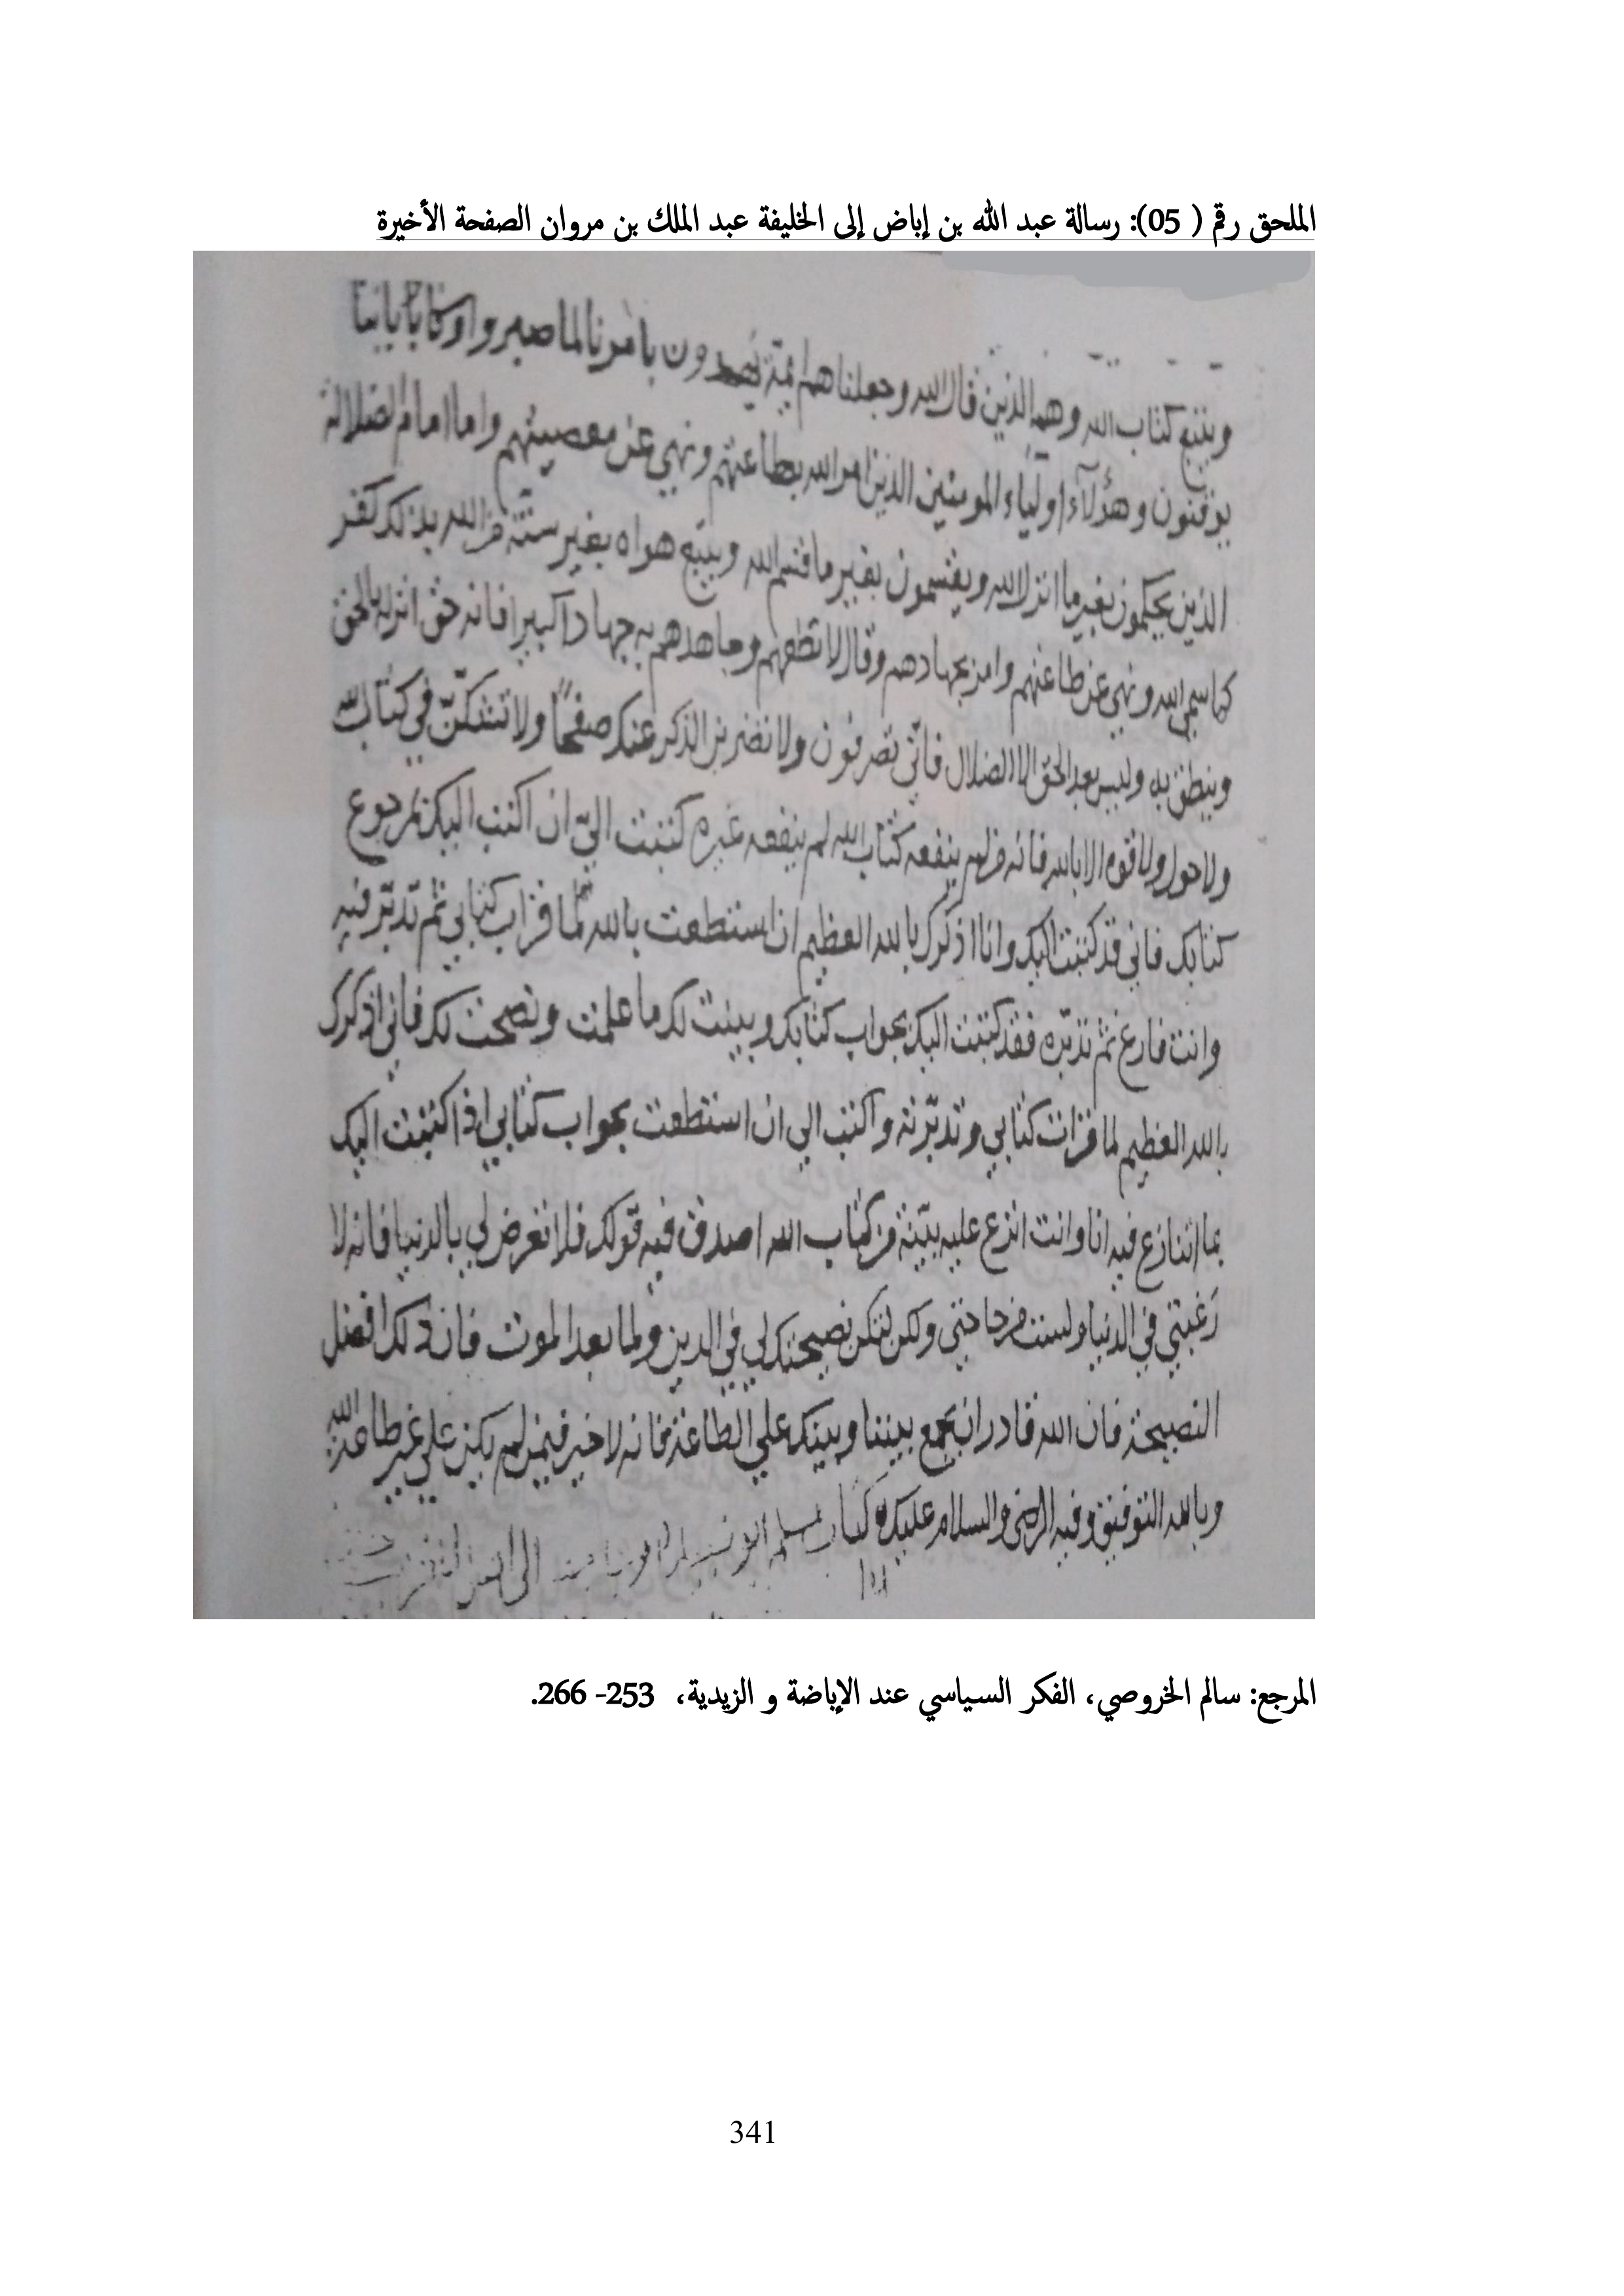 الملحق رقم ( 05): رسالة عبد الله بن إباض إلى الخليفة عبد الملك بن مروان الصفحة الأخيرة
ويتبع كتاب الله وهم الذين قال الله وجعلناهم ايمة يهدون بامرنا لما صبروا وكانوا باياتنا
يوقنون وهؤلآء اوليآء المومنين الذين امر الله بطاعتهم ونهي عن معصيتهم واما امام الضلالة
الذين يحكمون بغير ما انزل الله ويقسمون بغير ما قسم الله ويتبع هواه بغير سنة من الله بذلك كفر
كما سمي الله ونهي عن طاعتهم وامر بجهادهم وقال لا تطعهم وجاهدهم به جهادا كبيرا فانه حق انزله بالحق
وينطق به وليس بعد الحق الا الضلال فانّي تصرفون ولا تضربن الذكر عنك صفحًا ولا تشكنّ في كتاب الله
ولا حول ولا قوة الا بالله فانه من لم ينفعه كتاب الله لم ينفعه غيره كتبت اليّ ان اكتب اليك بمرجوع
كتابك فاني قد كتبت اليك وانا اذكرك بالله العظيم ان استطعت بالله لما قرات كتابي ثم تدبّر فيه
وانت فارغ ثم تدبّره فقد كتبت اليك بجواب كتابك وبينت لك ما علمت ونصحت لك فاني اذكرك
بالله العظيم لما قرات كتابي وتدبّرته واكتب الي ان استطعت بجواب كتابي اذا كتبت اليك
بما اتنازع فيه انا وانت انزع عليه بيّنة من كتاب الله اصدق فيه قولك فلا تعرض لي بالدنيا فانه لا
رَغبتي في الدنيا وليست من حاجتي ولكن لتكن نصيحتك لي في الدين ولما بعد الموت فان ذلك افضل
النصيحة فان الله قادر ان يجمع بيننا وبينك علي الطاعة فانه لا خير فيمن لم يكن علي غير طاعة الله
وبالله التوفيق وفيه الرضى والسلام عليك كتاب
المرجع: سالم الخروصي، الفكر السياسي عند الإباضة و الزيدية، 253- 266.
341